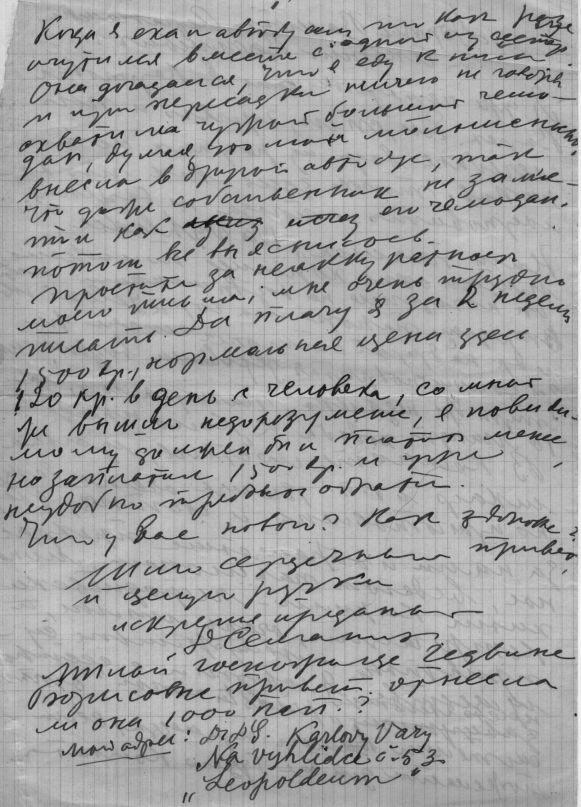 Когда я ехал автобусом то как раз
очутился вместе с одной из сестер.
Она догадалась, что я еду к
и при пересадке ничего не говоря
схватила чужой большой чемо-
дан, думая, что мой моментально
внесла в другой автобус, так
что даже собственник не заме-
тил как исчез его чемодан.
потом все выяснилось.
Простите за неаккуратность
моего письма, мне очень трудно
писать. Да плачу я за 2 недели
1500 кр., нормальная цена здесь
120 кр. в день с человека, со мной
же вышло недоразумение, я повиди-
мому должен был платить менее
но заплатил 1500 кр. и уже
неудобно требовать обратно.
Что у Вас нового? Как здоровье?
Шлю сердечный привет
и целую ручки
искренне преданный
Милой госпоже Гедвике
Борисовне привет. отнесла
ли она 1000 ?
Мой адрес: Karlovy Vary
Na vyhlídce č. 53
"Leopoldeum"